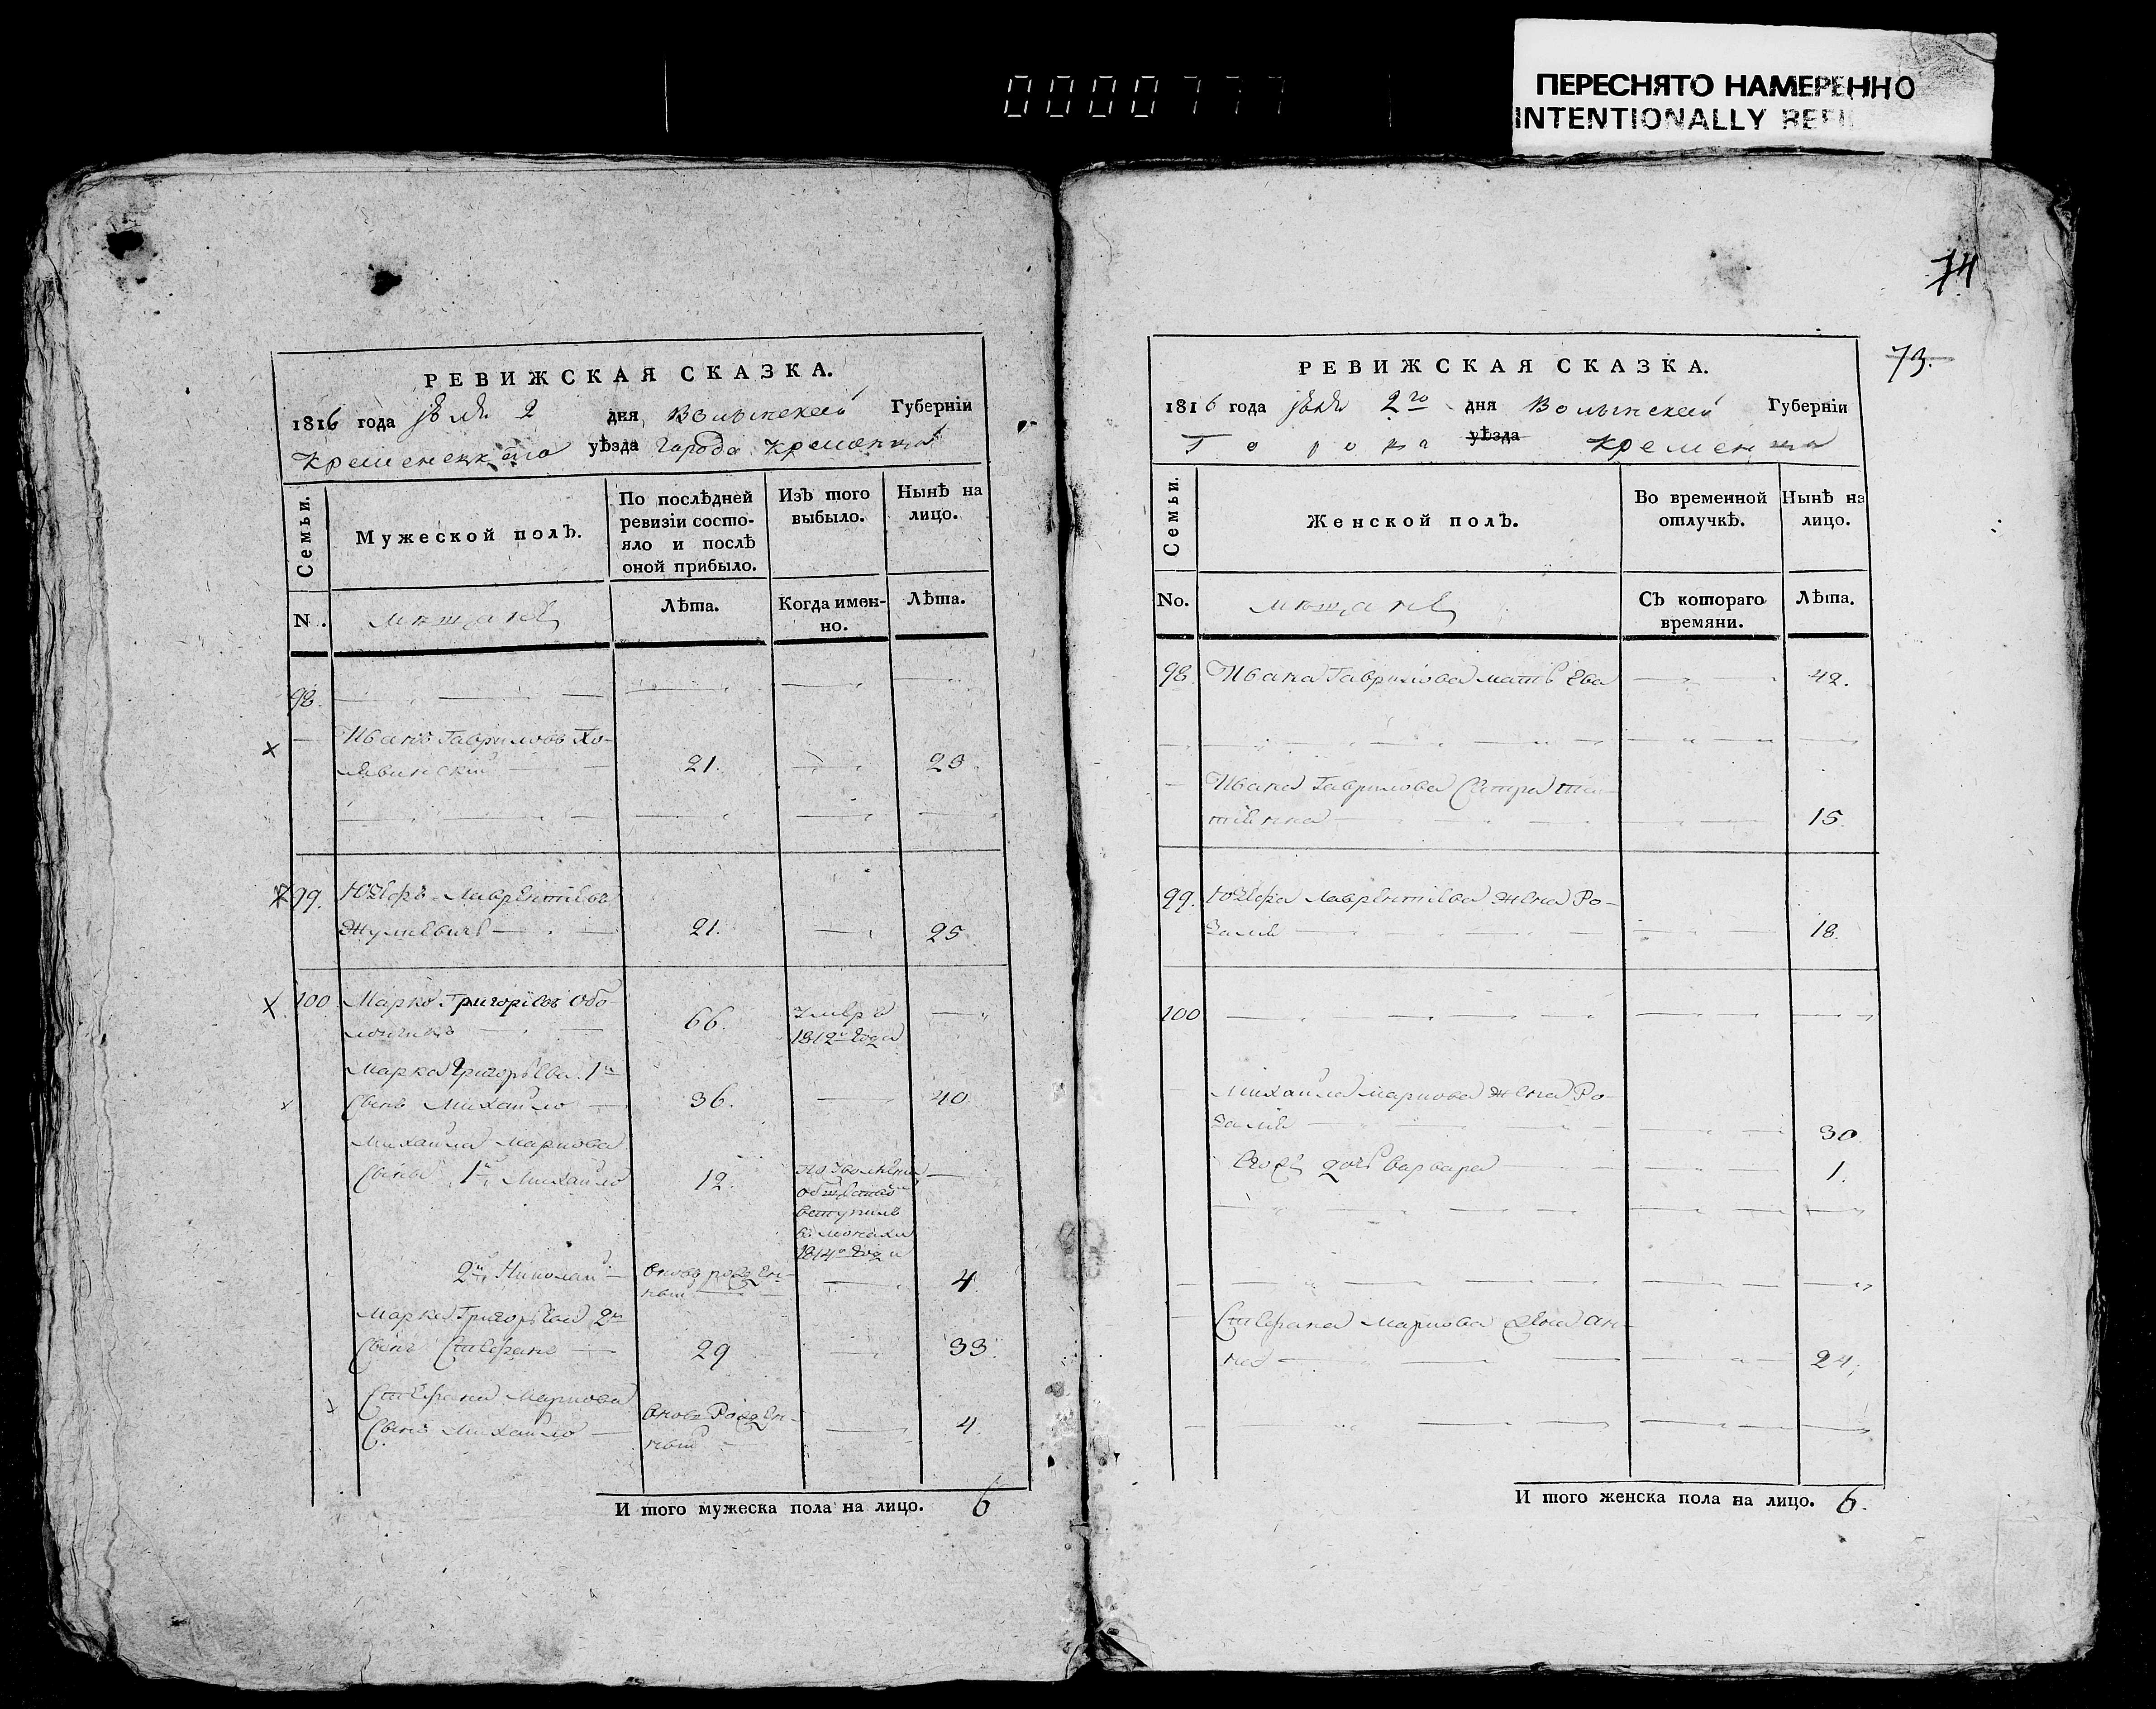 0000777
ПЕРЕСНЯТО НАМЕРЕННО
INTENTIONALLY REFIL
РЕВИЖСКАЯ СКАЗКА.
1816 года 2 дня Волынской Губерніи
Кременецкаго уѣзда города Кременца
Семьи.
Мужеской полъ.
По послѣдней ревизіи состо-
яло и послѣ
оной прибыло.
Изъ того
выбыло.
Нынѣ на
лицо.
N.
мѣщане
Лѣта.
Когда имен-
но.
Лѣта.
98.
Иванъ Гавриловъ
21. 25
99. Юзефъ Лаврентіевъ
21. 25
100 Марко Григоріевъ Обо
66. умеръ
1812го года
Марка Григорьева 1й
Сынъ Михайло 36. 40
Михайла Маркова
Сынъ 1й Михайло 12.
общества
вступилъ
въ монахи
1814го года
2й Николай вновь рожден-
ный 4
Марка Григорьева 2й
Сынъ Стефанъ 29 33.
Стефана Маркова
Сынъ Михайло вновь Рожден-
ный 4
И того мужеска пола на лицо. 6
74
73.
РЕВИЖСКАЯ СКАЗКА.
1816 года 2го дня Волынской Губерніи
Города уѣзда Кременца
Семьи.
Женской полъ.
Во временной
отлучкѣ.
Нынѣ на
лицо.
No.
мѣщане
Съ котораго
времяни.
Лѣта.
98. Ивана Гаврилова мать Ева 42.
Ивана Гаврилова Сестра
15.
99. Юзефа Лаврентіева жена Ро-
заліе 18.
100
Михайла Маркова жена Ро-
заліе 30.
Его дочь Варвара 1.
Стефана Маркова жена Ан-
на 24.
И того женска пола на лицо. 6.